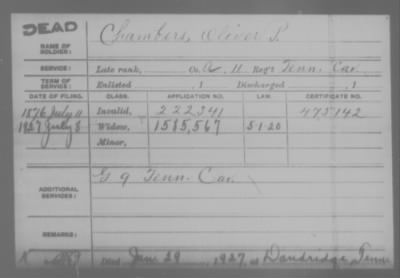 DEAD
NAME OF SOLDIER: Chambers, Oliver P.
SERVICE: Late rank, Co. A, 11 Reg't Tenn. Cav.
TERM OF SERVICE: Enlisted , 1 Discharged , 1
DATE OF FILING. CLASS. APPLICATION NO. LAW. CERTIFICATE NO.
1876 July 11 Invalid, 222341 475142
1927 July 8 Widow, 1585,567 5-1-20
Minor,
ADDITIONAL SERVICES: G 9 Tenn. Cav.
REMARKS:
Died June 29, 1927, at Dandridge, Tenn